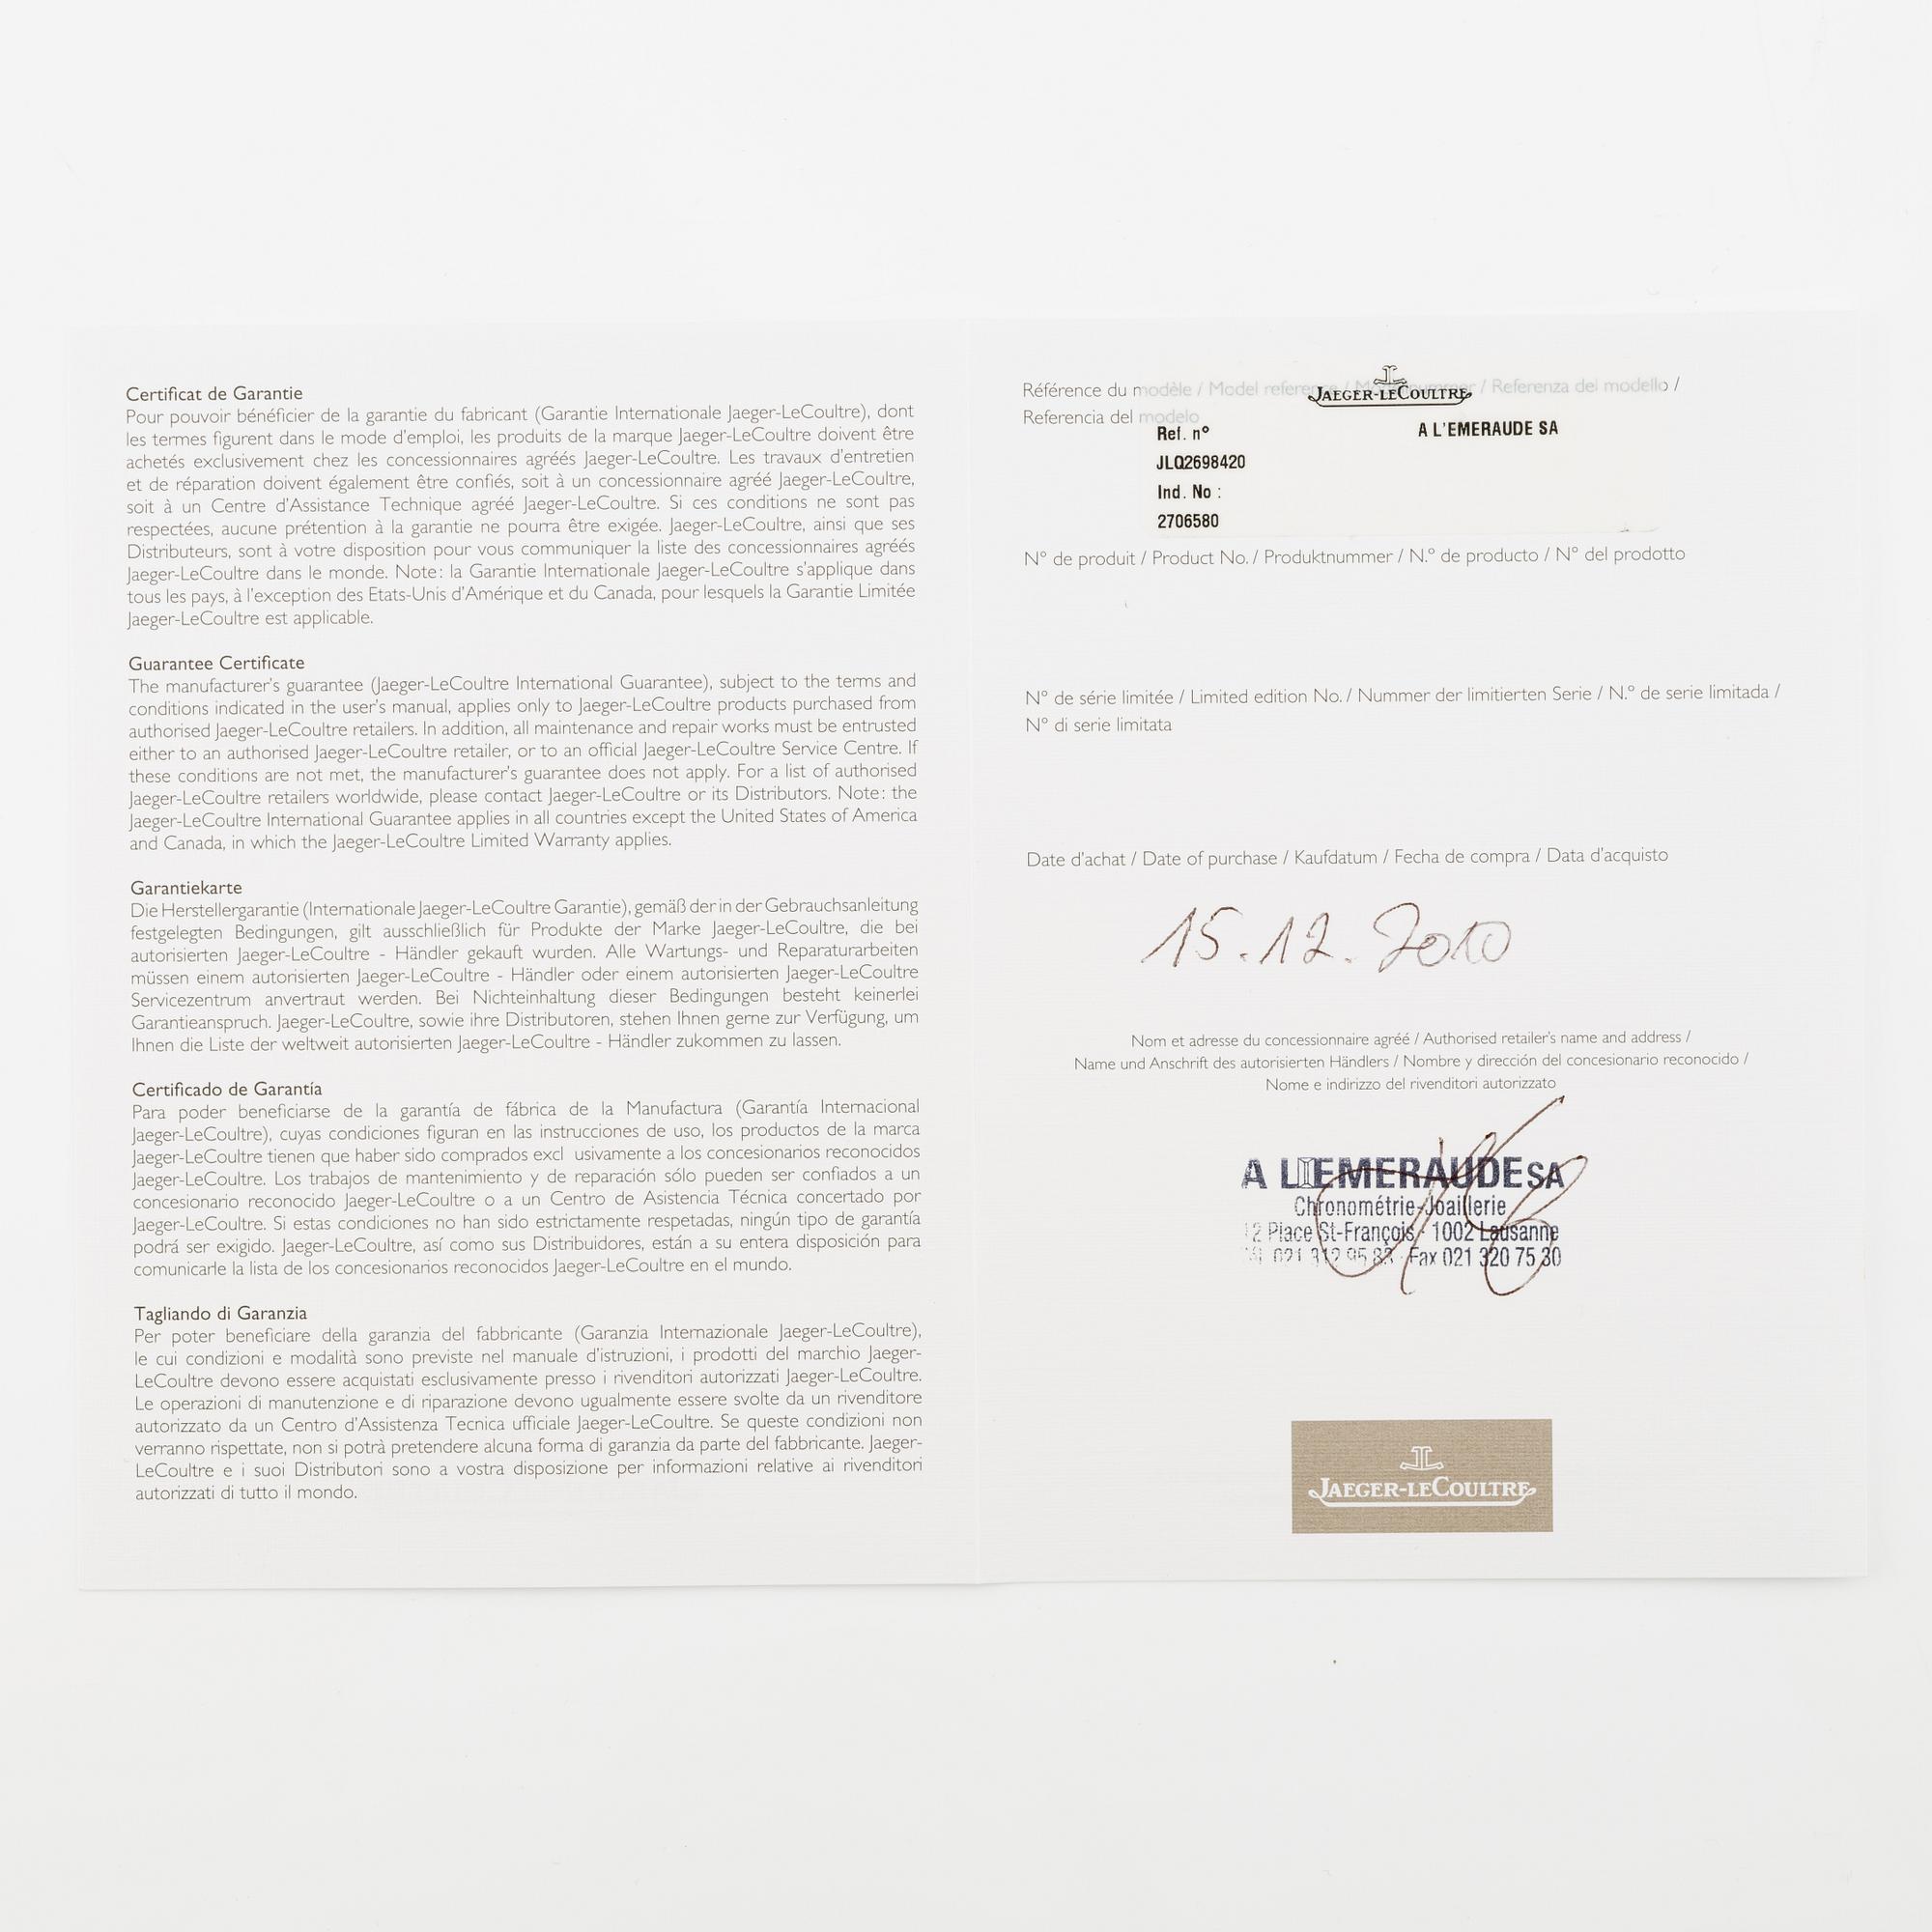 Certificat de Garantie
Pour pouvoir bénéficier de la garantie du fabricant (Garantie Internationale Jaeger-LeCoultre), dont
les termes figurent dans le mode d'emploi, les produits de la marque Jaeger-LeCoultre doivent être
achetés exclusivement chez les concessionnaires agréés Jaeger-LeCoultre. Les travaux d'entretien
et de réparation doivent également être confiés, soit à un concessionnaire agréé Jaeger-LeCoultre,
soit à un Centre d'Assistance Technique agréé Jaeger-LeCoultre. Si ces conditions ne sont pas
respectées, aucune prétention à la garantie ne pourra être exigée. Jaeger-LeCoultre, ainsi que ses
Distributeurs, sont à votre disposition pour vous communiquer la liste des concessionnaires agréés
Jaeger-LeCoultre dans le monde. Note: la Garantie Internationale Jaeger-LeCoultre s'applique dans
tous les pays, à l'exception des Etats-Unis d'Amérique et du Canada, pour lesquels la Garantie Limitée
Jaeger-LeCoultre est applicable.
Guarantee Certificate
The manufacturer's guarantee (Jaeger-LeCoultre International Guarantee), subject to the terms and
conditions indicated in the user's manual, applies only to Jaeger-LeCoultre products purchased from
authorised Jaeger-LeCoultre retailers. In addition, all maintenance and repair works must be entrusted
either to an authorised Jaeger-LeCoultre retailer, or to an official Jaeger-LeCoultre Service Centre. If
these conditions are not met, the manufacturer's guarantee does not apply. For a list of authorised
Jaeger-LeCoultre retailers worldwide, please contact Jaeger-LeCoultre or its Distributors. Note: the
Jaeger-LeCoultre International Guarantee applies in all countries except the United States of America
and Canada, in which the Jaeger-LeCoultre Limited Warranty applies.
Garantiekarte
Die Herstellergarantie (Internationale Jaeger-LeCoultre Garantie), gemäß der in der Gebrauchsanleitung
festgelegten Bedingungen, gilt ausschließlich für Produkte der Marke Jaeger-LeCoultre, die bei
autorisierten Jaeger-LeCoultre - Händler gekauft wurden. Alle Wartungs- und Reparaturarbeiten
müssen einem autorisierten Jaeger-LeCoultre - Händler oder einem autorisierten Jaeger-LeCoultre
Servicezentrum anvertraut werden. Bei Nichteinhaltung dieser Bedingungen besteht keinerlei
Garantieanspruch. Jaeger-LeCoultre, sowie ihre Distributoren, stehen Ihnen gerne zur Verfügung, um
Ihnen die Liste der weltweit autorisierten Jaeger-LeCoultre - Händler zukommen zu lassen.
Certificado de Garantía
Para poder beneficiarse de la garantía de fábrica de la Manufactura (Garantía Internacional
Jaeger-LeCoultre), cuyas condiciones figuran en las instrucciones de uso, los productos de la marca
Jaeger-LeCoultre tienen que haber sido comprados excl usivamente a los concesionarios reconocidos
Jaeger-LeCoultre. Los trabajos de mantenimiento y de reparación sólo pueden ser confiados a un
concesionario reconocido Jaeger-LeCoultre o a un Centro de Asistencia Técnica concertado por
Jaeger-LeCoultre. Si estas condiciones no han sido estrictamente respetadas, ningún tipo de garantía
podrá ser exigido. Jaeger-LeCoultre, así como sus Distribuidores, están a su entera disposición para
comunicarle la lista de los concesionarios reconocidos Jaeger-LeCoultre en el mundo.
Tagliando di Garanzia
Per poter beneficiare della garanzia del fabbricante (Garanzia Internazionale Jaeger-LeCoultre),
le cui condizioni e modalità sono previste nel manuale d'istruzioni, i prodotti del marchio Jaeger-
LeCoultre devono essere acquistati esclusivamente presso i rivenditori autorizzati Jaeger-LeCoultre.
Le operazioni di manutenzione e di riparazione devono ugualmente essere svolte da un rivenditore
autorizzato da un Centro d'Assistenza Tecnica ufficiale Jaeger-LeCoultre. Se queste condizioni non
verranno rispettate, non si potrà pretendere alcuna forma di garanzia da parte del fabbricante. Jaeger-
LeCoultre e i suoi Distributori sono a vostra disposizione per informazioni relative ai rivenditori
autorizzati di tutto il mondo.
Référence du modèle / Model reference / Modellnummer / Referenza del modello /
Referencia del modelo
JAEGER-LECOULTRE
Ref. n° A L'EMERAUDE SA
JLQ2698420
Ind. No :
2706580
N° de produit / Product No. / Produktnummer / N.º de producto / N° del prodotto
N° de série limitée / Limited edition No. / Nummer der limitierten Serie / N.º de serie limitada /
N° di serie limitata
Date d'achat / Date of purchase / Kaufdatum / Fecha de compra / Data d'acquisto
15.12.2010
Nom et adresse du concessionnaire agréé / Authorised retailer's name and address /
Name und Anschrift des autorisierten Händlers / Nombre y dirección del concesionario reconocido /
Nome e indirizzo del rivenditori autorizzato
A L'EMERAUDE SA
Chronométrie-Joaillerie
12 Place St-François · 1002 Lausanne
021 312 95 83 · Fax 021 320 75 30
JAEGER-LECOULTRE